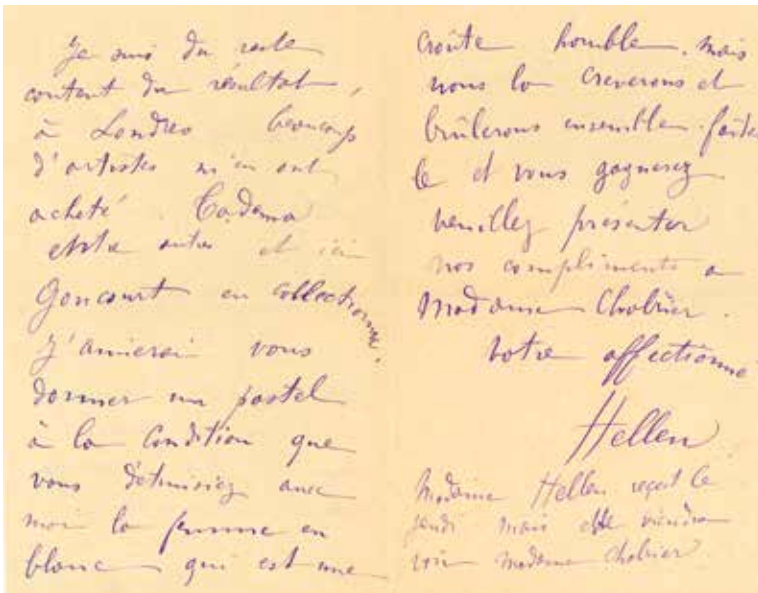 Je suis du reste
content du résultat,
à Londres beaucoup
d'artistes m'en ont
acheté Tadema
entre autres et ici
Goncourt en collectionne.
J'aimerai vous
donner un pastel
à la condition que
vous détruisiez avec
moi la femme en
blanc qui est une
croûte horrible. mais
nous la creverons et
brûlerons ensemble. faites
le et vous gagnerez
veuillez présenter
nos compliments a
Madame Chabrier.
votre affectionné
Helleu
Madame Helleu reçoit le
jeudi mais elle viendra
voir madame Chabrier.